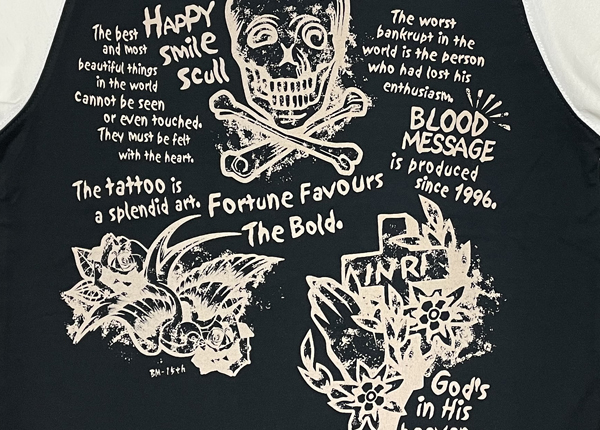 The best
and most
beautiful things
in the world
cannot be seen
or even touched.
They must be felt
with the heart.
HAPPY
smile
scull
The worst
bankrupt in the
world is the person
who had lost his
enthusiasm.
BLOOD
MESSAGE
is produced
since 1996.
The tattoo is
a splendid art.
Fortune Favours
The Bold.
INRI
BM-15th
God's
in His
heaven